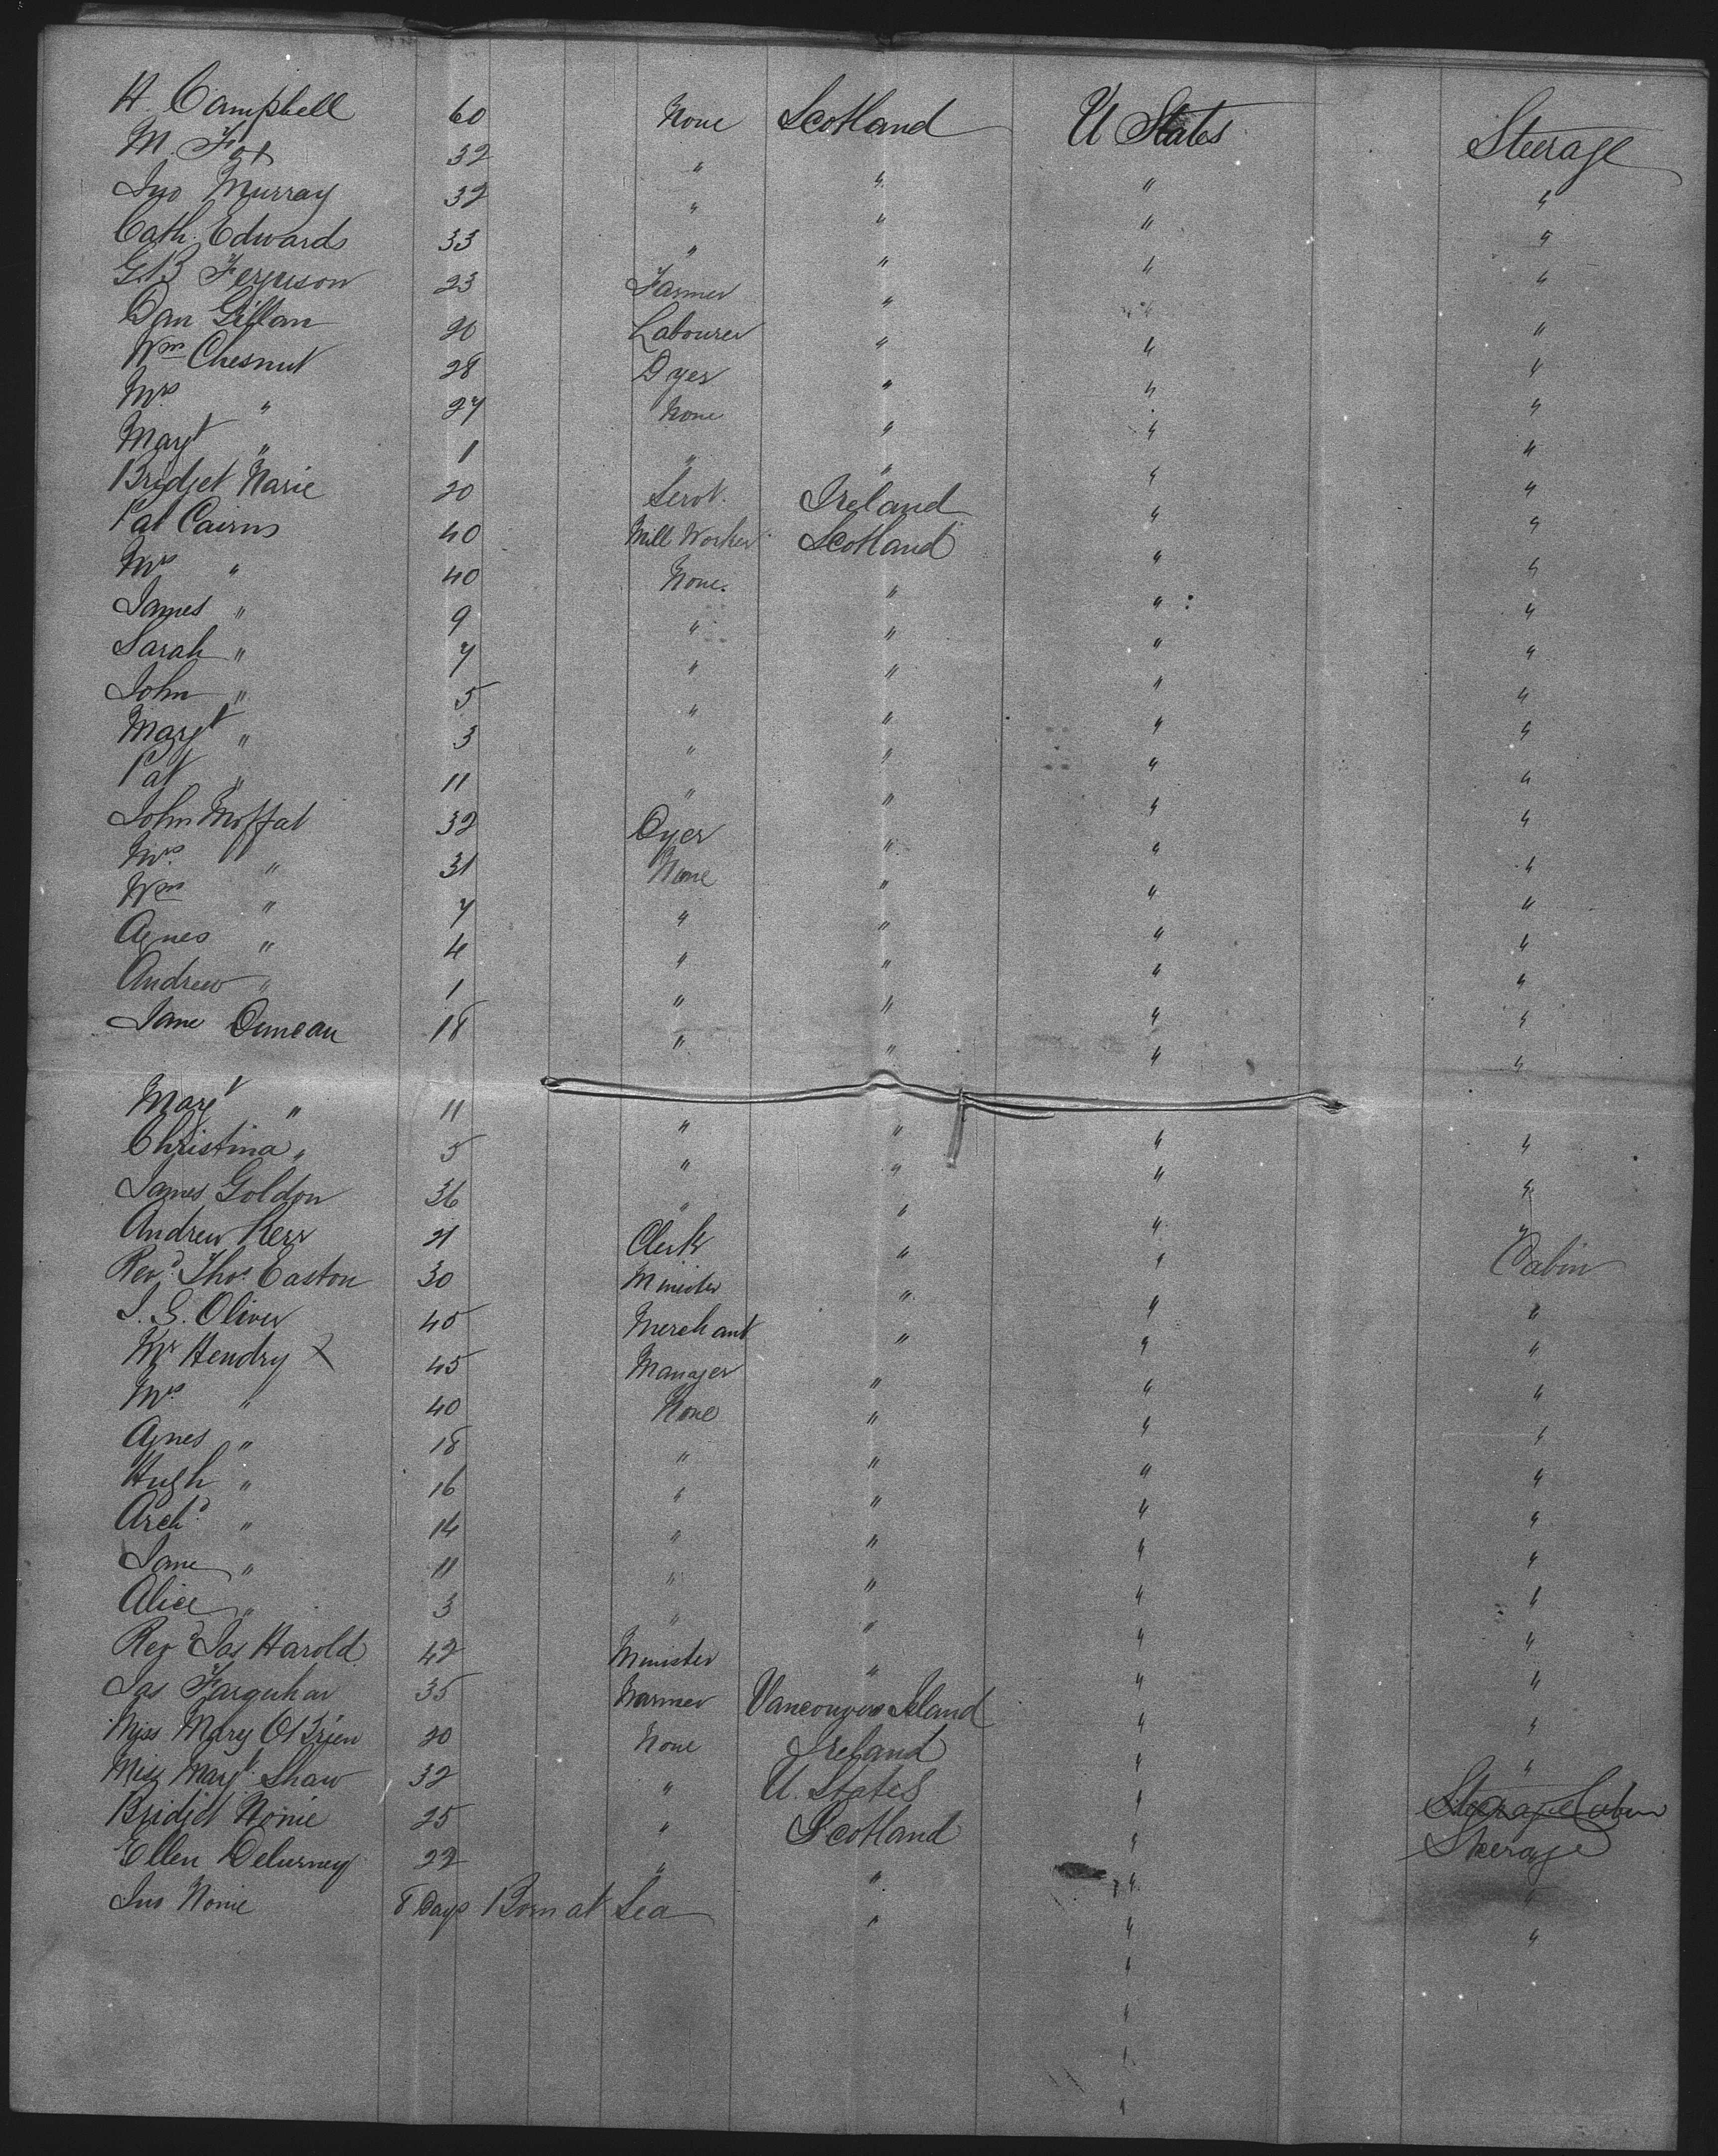 H. Campbell 60 None Scotland U States Steerage
M. Fox 32 " " " "
Jno Murray 32 " " " "
Cath. Edwards 33 " " " "
G B Ferguson 23 Farmer " " "
Dan Gillan 20 Labourer " " "
Wm Chesnut 28 Dyer " " "
Mrs " 27 None " " "
Margt " 1 " " " "
Bridget Narie 20 Servt. Ireland " "
Pat Cairns 40 Mill Worker Scotland " "
Mrs " 40 None. " " "
James " 9 " " " "
Sarah " 7 " " " "
John " 5 " " " "
Margt " 3 " " " "
Pat " 11 " " " "
John Moffat 32 Dyer " " "
Mrs. " 31 None " " "
Wm " 7 " " " "
Agnes " 4 " " " "
Andrew " 1 " " " "
Jane Duncan 18 " " " "
Margt " 11 " " " "
Christina " 5 " " " "
James Goldon 36 " " " "
Andrew Kerr 21 Clerk " " "
Revd. Thos. Easton 30 Minister " " Cabin
J. G. Oliver 45 Merchant " " "
Mr Hendry X 45 Manager " " "
Mrs. " 40 None " " "
Agnes " 18 " " " "
Hugh " 16 " " " "
Archd. " 14 " " " "
Jane " 11 " " " "
Alice " 3 " " " "
Revd Jas Harold 42 Minister " " "
Jas Farquhar 35 Vancouver Island " "
Miss Mary O'Brien 20 None Ireland " "
Miss Margt. Shaw 32 " U. States " "
Bridjet Nonie 25 " Scotland " Steerage
Ellen Delurney 22 " " " "
Jno Nonie 8 Days Born at Sea " " "